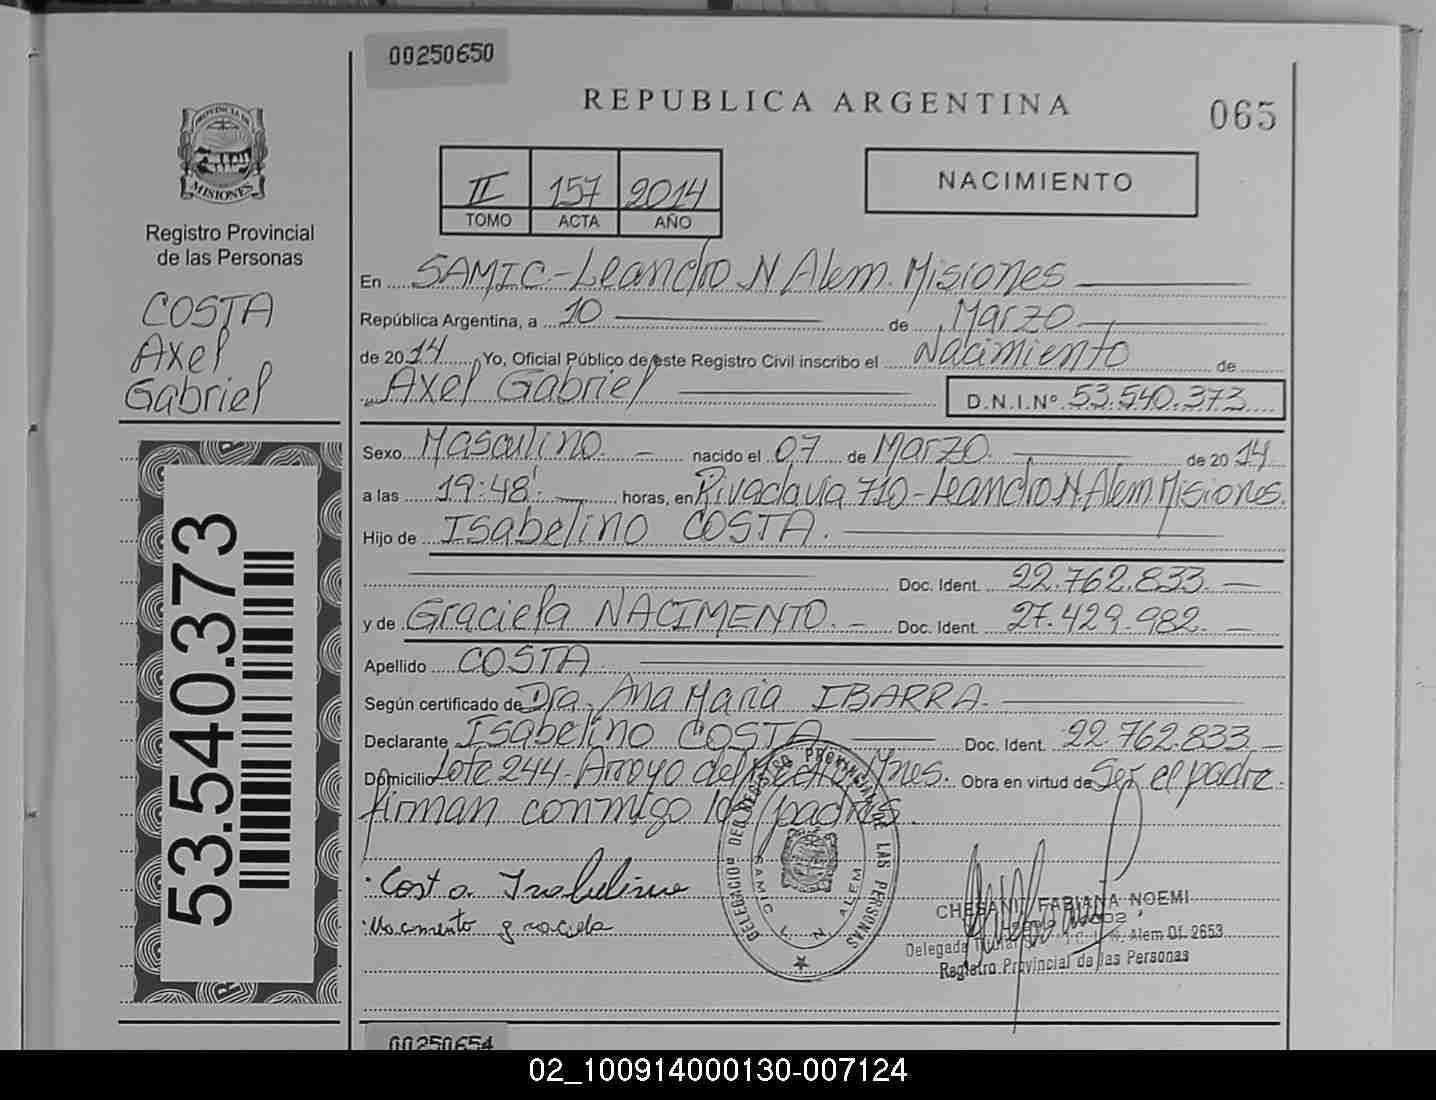 00250650
REPUBLICA ARGENTINA
065
PROVINCIA DE
MISIONES
Registro Provincial
de las Personas
COSTA
Axel
Gabriel
53.540.373
II 157 2014
TOMO ACTA AÑO
NACIMIENTO
En SAMIC - Leandro N Alem. Misiones
República Argentina, a 10 de Marzo
de 2014 Yo, Oficial Público de este Registro Civil inscribo el Nacimiento de
Axel Gabriel D.N.I.Nº 53.540.373
Sexo Masculino. nacido el 07 de Marzo. de 2014
a las 19:48' horas, en Rivadavia 710 - Leandro N. Alem. Misiones.
Hijo de Isabelino COSTA.
Doc. Ident. 22.762.833.
y de Graciela NACIMENTO. Doc. Ident. 27.429.982.
Apellido COSTA.
Según certificado de Dra. Ana Maria IBARRA.
Declarante Isabelino COSTA Doc. Ident. 22.762.833
Domicilio Lote 244 - Arroyo del Medio Mnes. Obra en virtud de Ser el padre.
firman conmigo los padres.
Costa Isabelino
Nacimento graciela
DELEGACION DEL REGISTRO PROVINCIAL DE LAS PERSONAS
SAMIC L N ALEM
FABIANA NOEMI
Delegada Titular Alem Of. 2653
Registro Provincial de las Personas
00250654
02_100914000130-007124